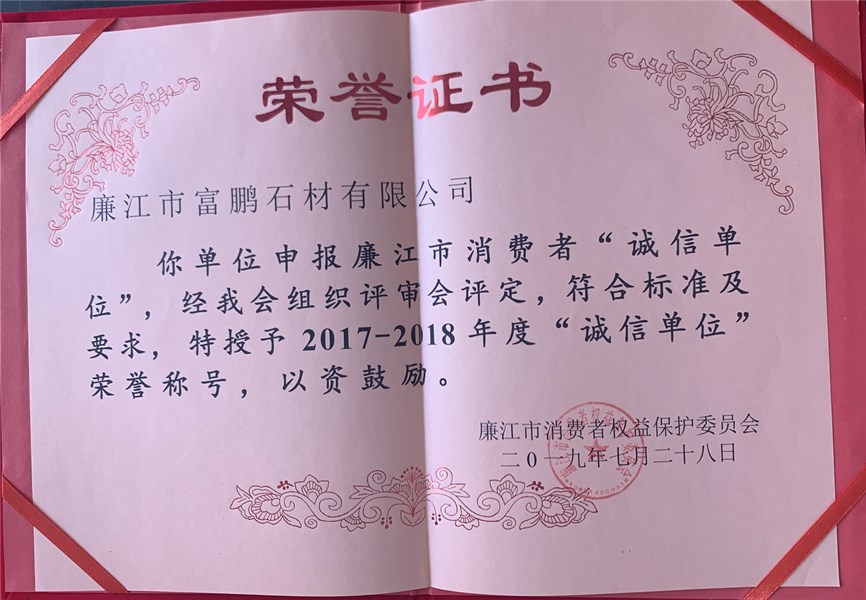 荣誉证书
廉江市富鹏石材有限公司
你单位申报廉江市消费者“诚信单
位”，经我会组织评审会评定，符合标准及
要求，特授予2017-2018年度“诚信单位”
荣誉称号，以资鼓励。
廉江市消费者权益保护委员会
二0一九年七月二十八日